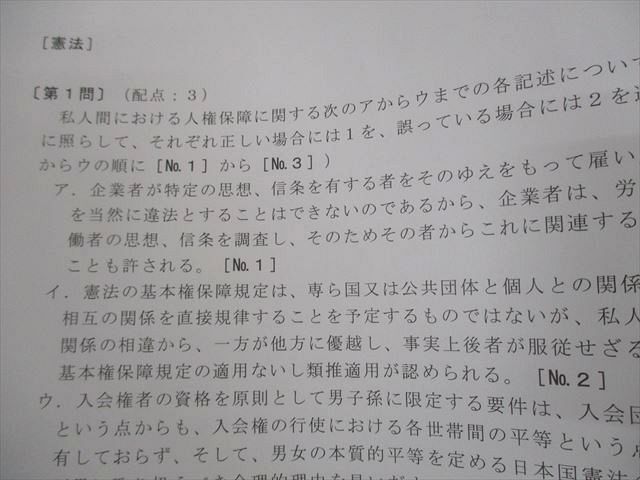 [憲法]
〔第1問〕（配点：3）
私人間における人権保障に関する次のアからウまでの各記述について
に照らして、それぞれ正しい場合には1を、誤っている場合には2を選
からウの順に[No.1]から[No.3]）
ア．企業者が特定の思想、信条を有する者をそのゆえをもって雇い
を当然に違法とすることはできないのであるから、企業者は、労
働者の思想、信条を調査し、そのためその者からこれに関連する
ことも許される。[No.1]
イ．憲法の基本権保障規定は、専ら国又は公共団体と個人との関係
相互の関係を直接規律することを予定するものではないが、私人
関係の相違から、一方が他方に優越し、事実上後者が服従せざる
基本権保障規定の適用ないし類推適用が認められる。[No.2]
ウ．入会権者の資格を原則として男子孫に限定する要件は、入会団
という点からも、入会権の行使における各世帯間の平等という点
有しておらず、そして、男女の本質的平等を定める日本国憲法